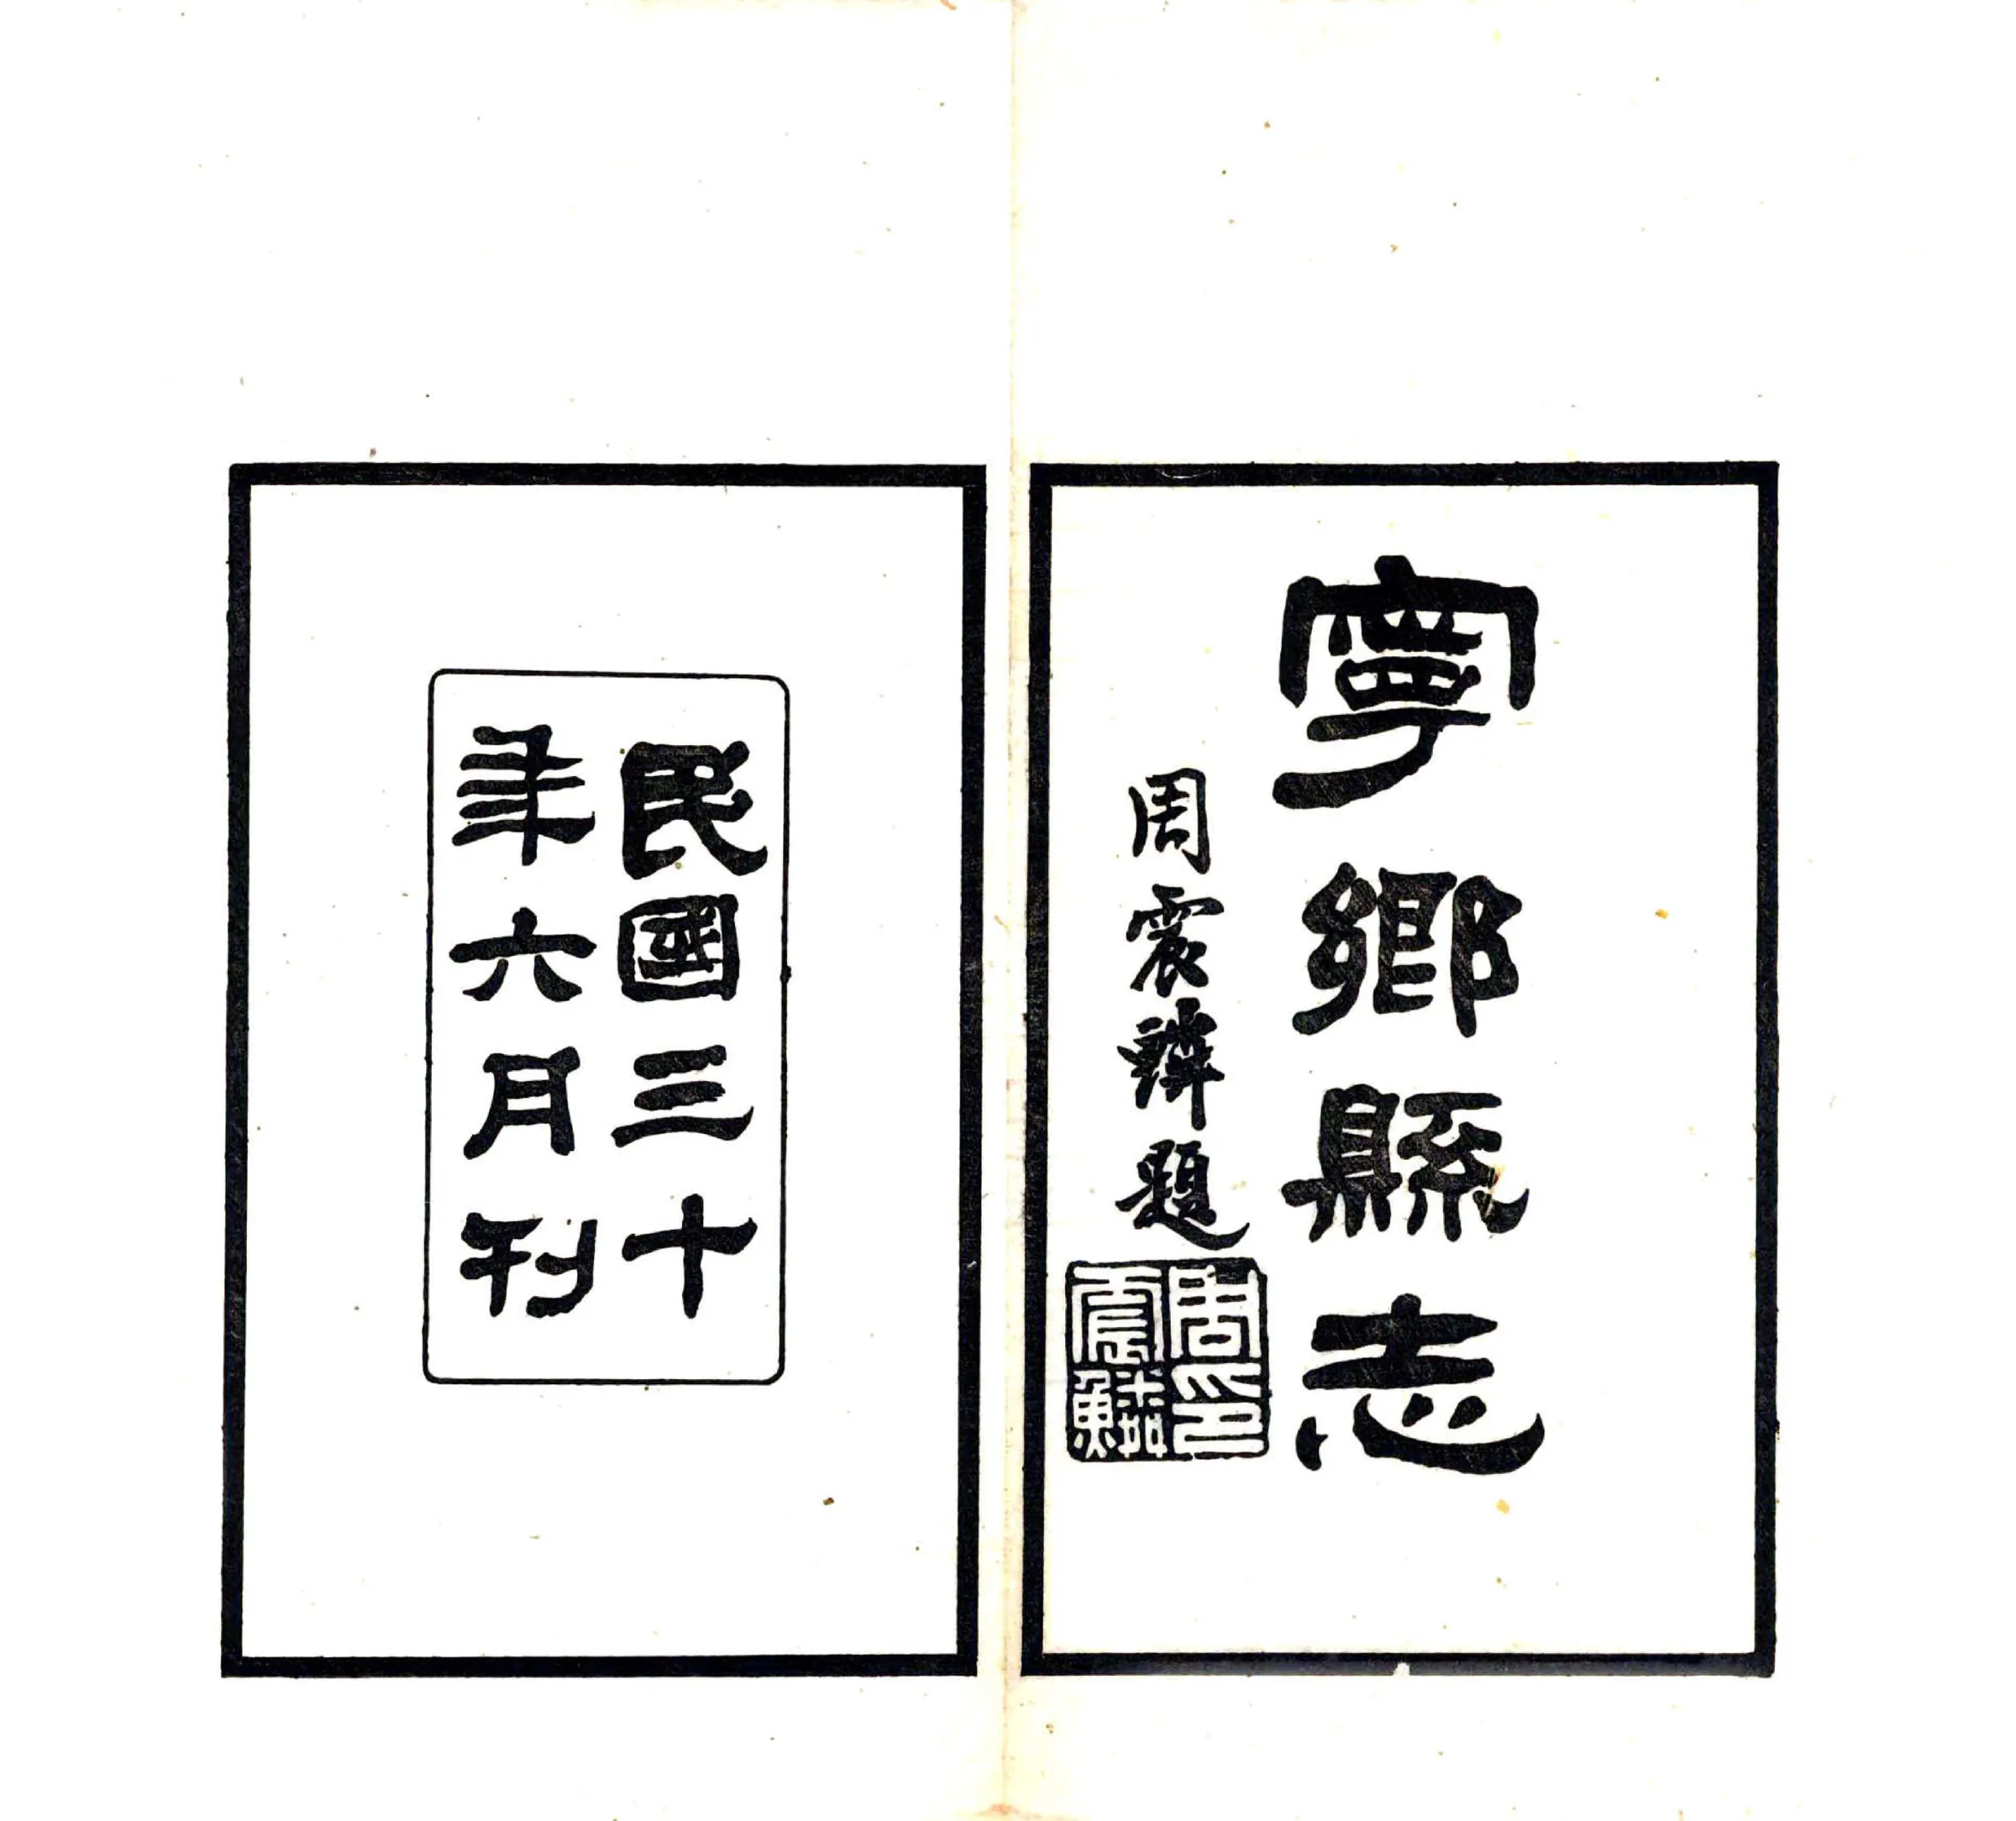 寧鄉縣志
周震鱗題
周印
震鱗
民國三十
年六月刊